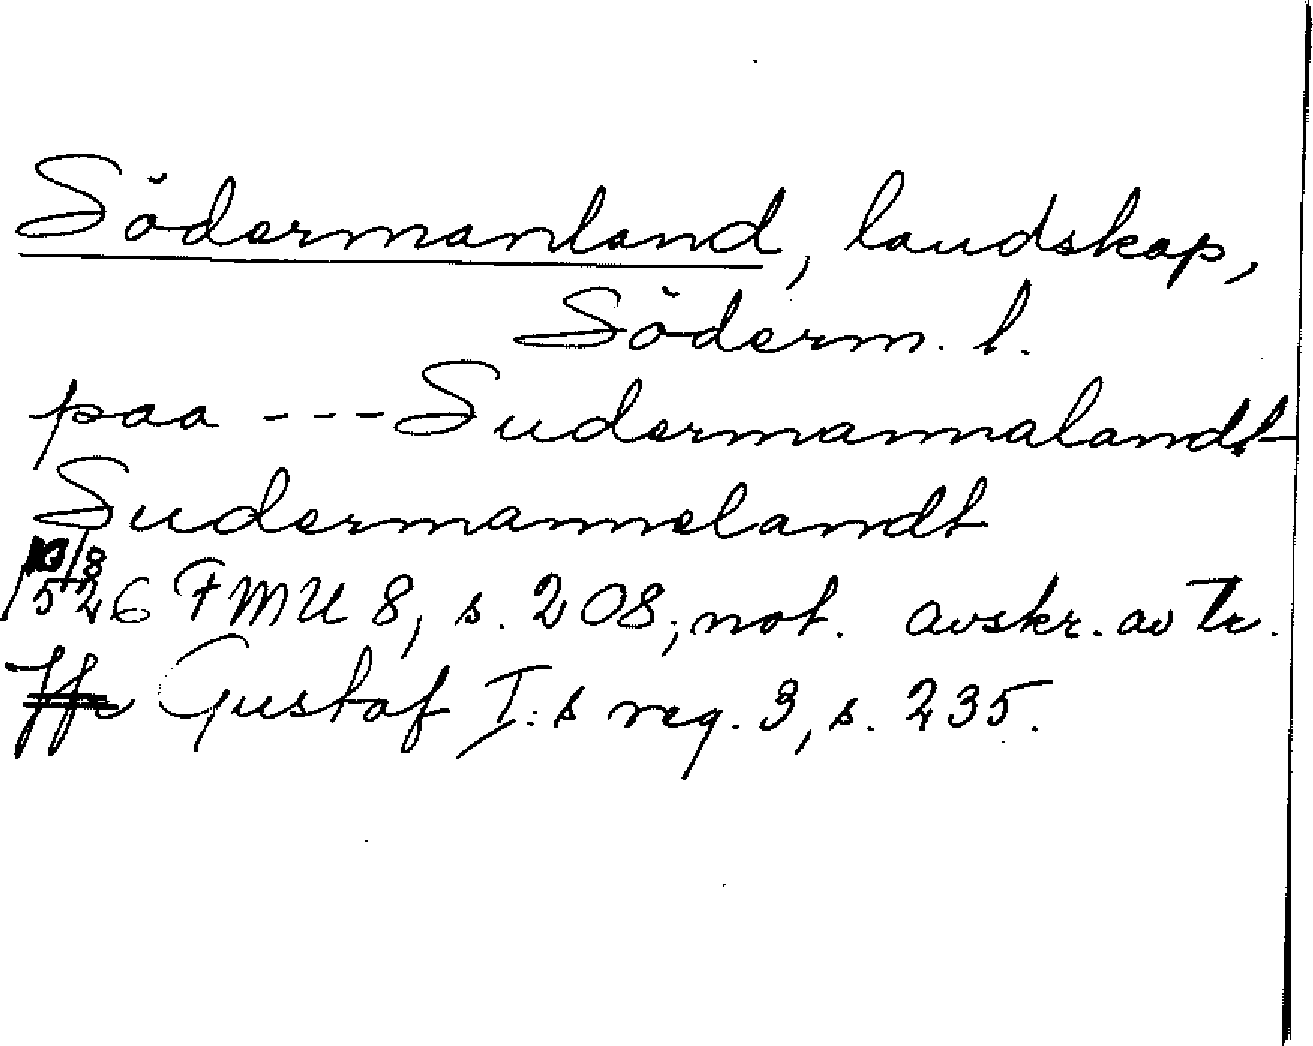 Södermanland, landskap,
Söderm. l.
paa --- Sudermannalandt
Sudermannelandt
/8
1526 FMU 8, s. 208; not. avskr. av Tr.
Gustaf I:s reg. 3, s. 235.